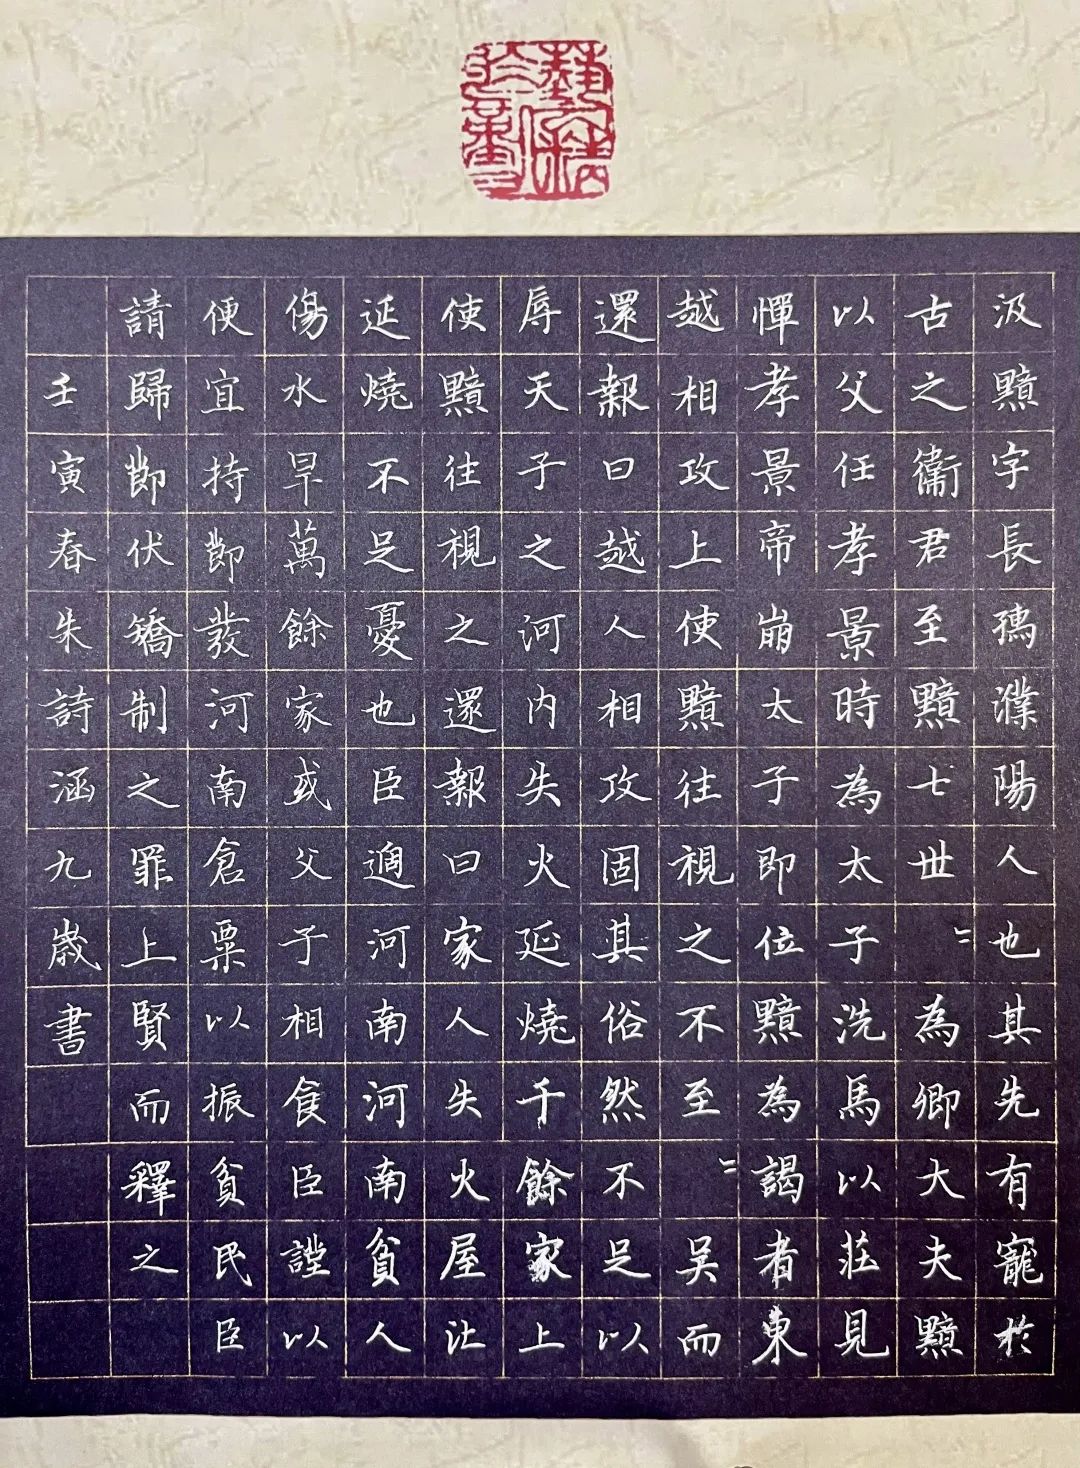 汲黯字長孺濮陽人也其先有寵於
古之衞君至黯七世＝為卿大夫黯
以父任孝景時為太子洗馬以莊見
憚孝景帝崩太子即位黯為謁者東
越相攻上使黯往視之不至＝吳而
還報曰越人相攻固其俗然不足以
辱天子之河內失火延燒千餘家上
使黯往視之還報曰家人失火屋比
延燒不足憂也臣過河南河南貧人
傷水旱萬餘家或父子相食臣謹以
便宜持節發河南倉粟以振貧民臣
請歸節伏矯制之罪上賢而釋之
壬寅春朱詩涵九歲書